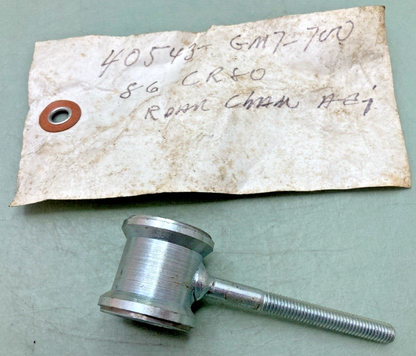 40543- GM7-700
86 CR80
REAR CHAIN Adj